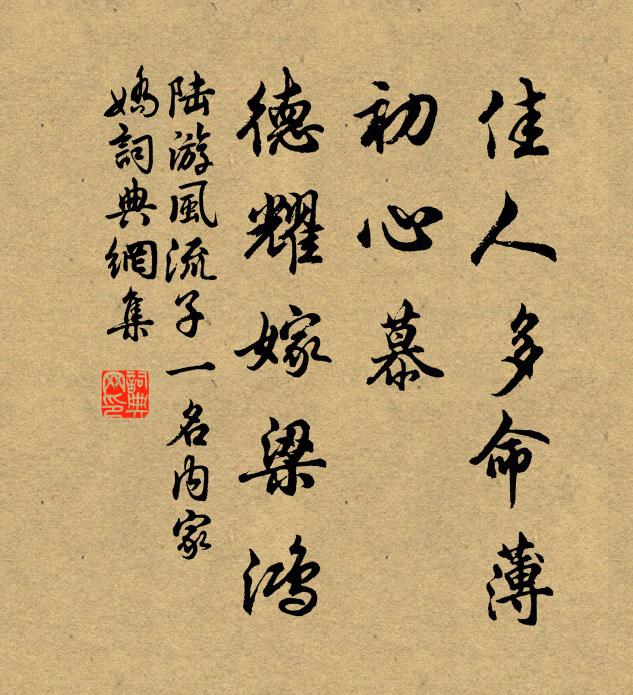 佳人多命薄
初心慕
德耀嫁梁鴻
陸游風流子一名内家
嬌詞典網集
詞典网印